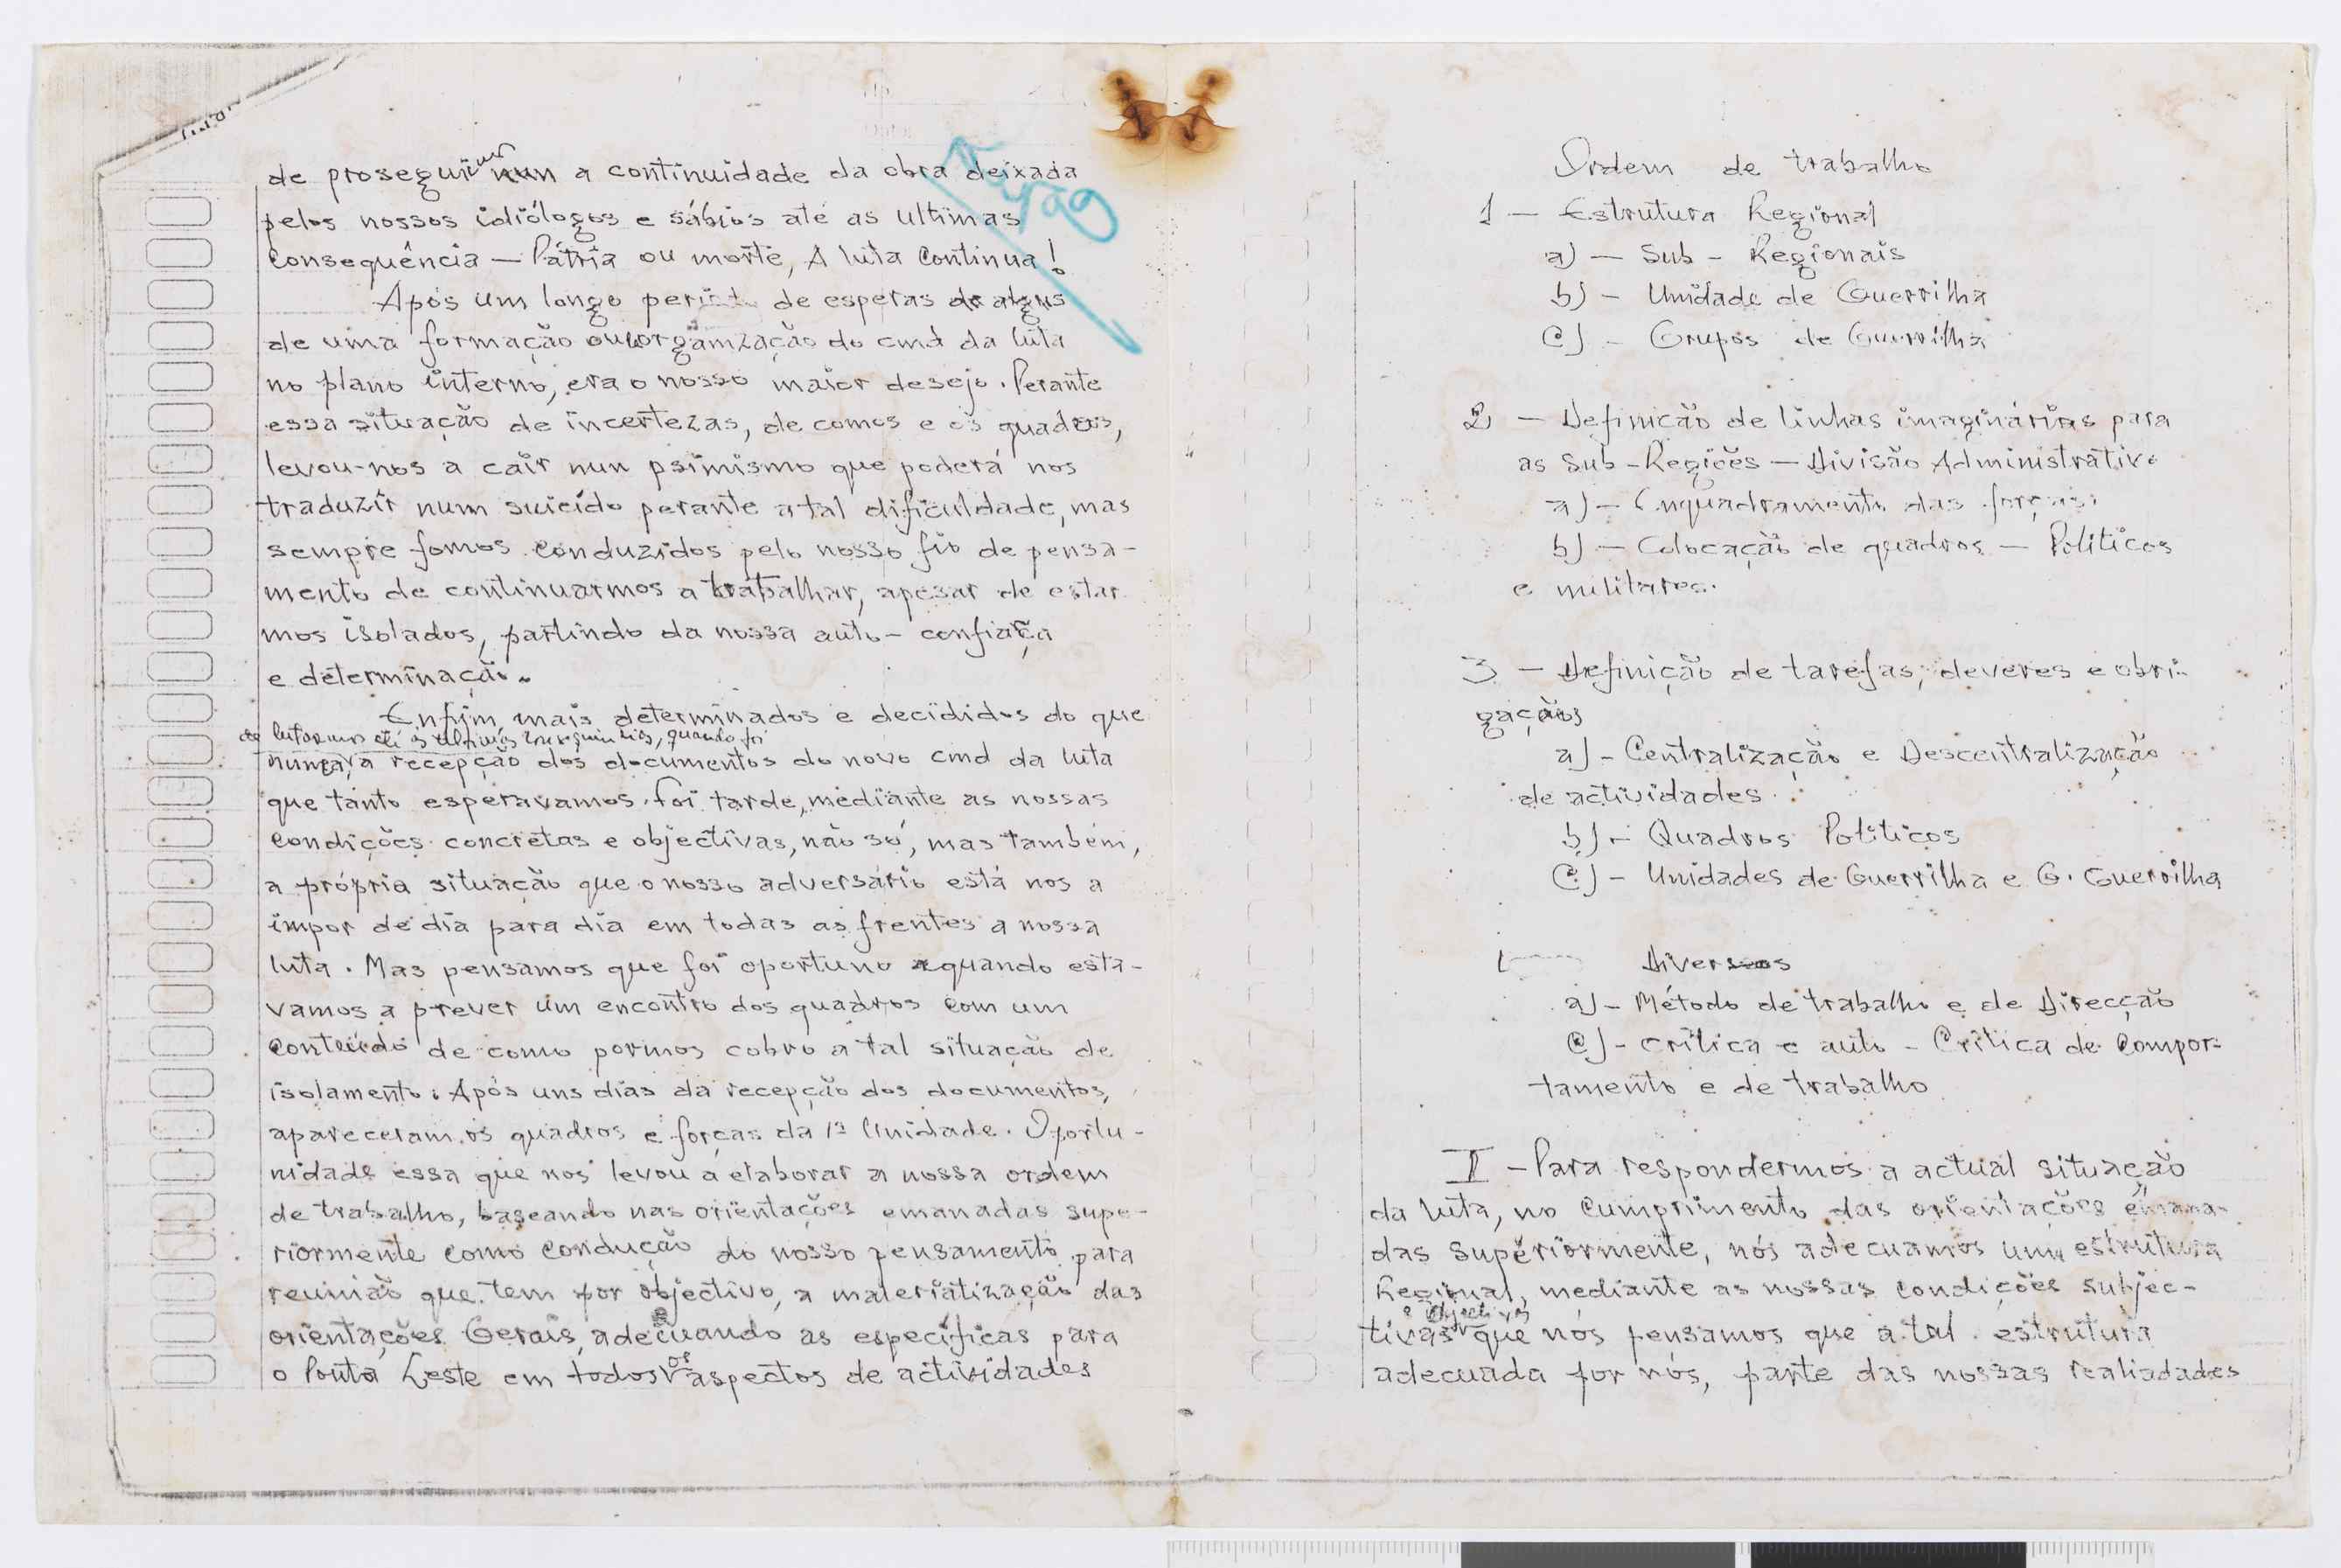 de proseguirmos a continuidade da obra deixada
pelos nossos idiólogos e sábios até as ultimas
Consequência — Pátria ou morte, A luta Continua!
Após um longo de esperas
de uma formação ou organização do cmd da luta
no plano interno, era o nosso maior desejo. Perante
essa situação de incertezas, de comos e os quadros,
levou-nos a cair nun psimismo que poderá nos
traduzir num suicído perante a tal dificuldade, mas
sempre fomos conduzidos pelo nosso fio de pensa-
mento de continuarmos a trabalhar, apesar de estar
mos isolados, partindo da nossa auto-confiaça
e determinação.
Enfim, mais determinados e decididos do que
de lutarmos até as ultimas quando foi
nunca, a recepção dos documentos do novo cmd da luta
que tanto esperavamos. foi tarde, mediante as nossas
condições concretas e objectivas, não só, mas também,
a própria situação que o nosso adversário está nos a
impor de dia para dia em todas as frentes a nossa
luta. Mas pensamos que foi oportuno quando está-
vamos a prever um encontro dos quadros com um
conteúdo de como pormos cobro a tal situação de
isolamento. Após uns dias da recepção dos documentos,
apareceram os quadros e forças da 1ª Unidade. Oportu-
nidade essa que nos levou a elaborar a nossa ordem
de trabalho, baseando nas orientações emanadas supe-
riormente como condução do nosso pensamento para
reunião que tem por objectivo, a materialização das
orientações Gerais, adecuando as específicas para
o Ponta Leste em todos os aspectos de actividades
Ordem de trabalho
1 — Estrutura Regional
a) — Sub - Regionais
b) — Unidade de Guerrilha
c) — Grupos de Guerrilha
2 — Definição de linhas imaginárias para
as Sub-Regiões — Divisão Administrativa
a) — Enquadramento das forças
b) — Colocação de quadros — Políticos
e militares.
3 — Definição de tarefas, deveres e obri-
gações
a) - Centralização e Descentralização
de actividades
b) - Quadros Políticos
c) - Unidades de Guerrilha e G. Guerrilha
Diversos
a) - Método de trabalho e de Direcção
c) - crítica e auto - Crítica de Compor-
tamento e de trabalho
I — Para respondermos a actual situação
da luta, no cumprimento das orientações emana-
das superiormente, nós adecuamos uma estrutura
Regional, mediante as nossas condições subjec-
e objectivas
tivas que nós pensamos que a tal estrutura
adecuada por nós, parte das nossas realiadades